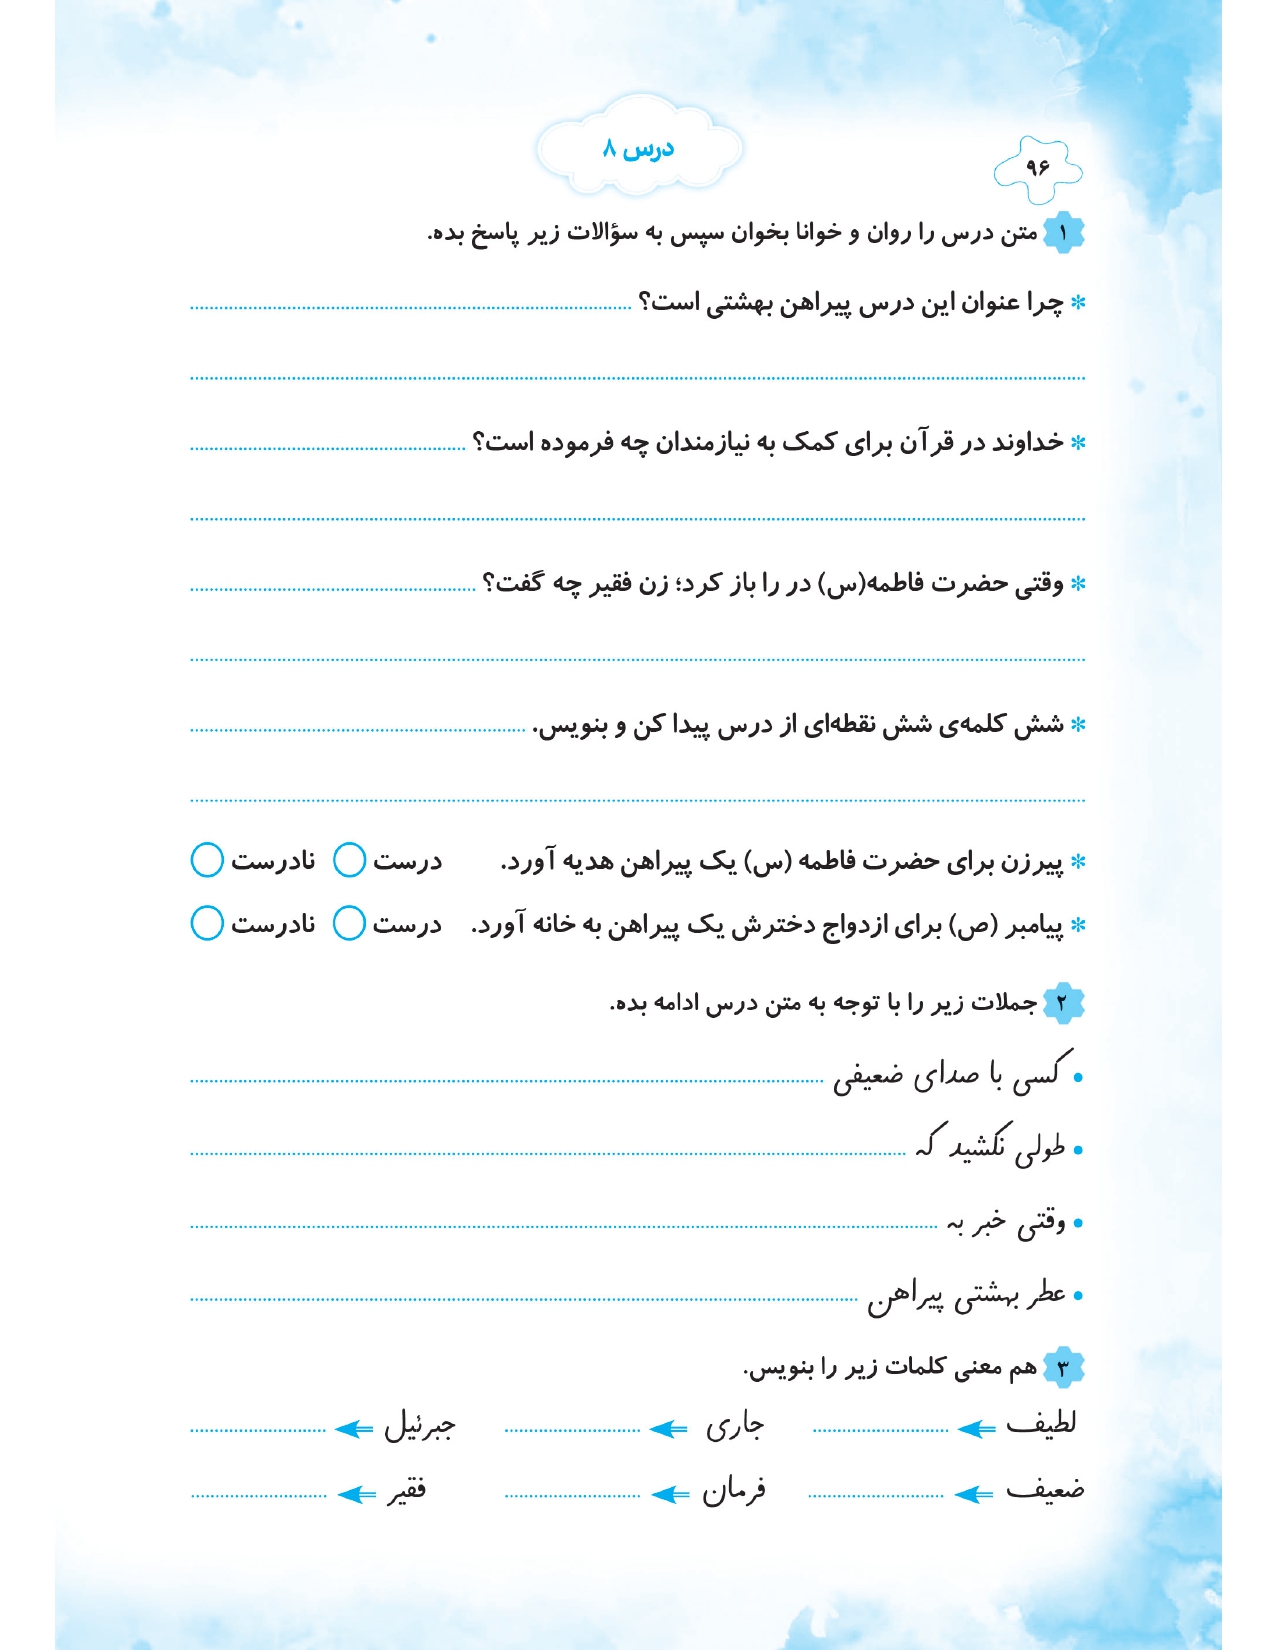 درس ۸
۹۶
۱ متن درس را روان و خوانا بخوان سپس به سؤالات زیر پاسخ بده.
* چرا عنوان این درس پیراهن بهشتی است؟
* خداوند در قرآن برای کمک به نیازمندان چه فرموده است؟
* وقتی حضرت فاطمه(س) در را باز کرد؛ زن فقیر چه گفت؟
* شش کلمه‌ی شش نقطه‌ای از درس پیدا کن و بنویس.
* پیرزن برای حضرت فاطمه (س) یک پیراهن هدیه آورد. درست نادرست
* پیامبر (ص) برای ازدواج دخترش یک پیراهن به خانه آورد. درست نادرست
۲ جملات زیر را با توجه به متن درس ادامه بده.
• کسی با صدای ضعیفی
• طولی نکشید که
• وقتی خبر به
• عطر بهشتی پیراهن
۳ هم معنی کلمات زیر را بنویس.
لطیف جاری جبرئیل
ضعیف فرمان فقیر